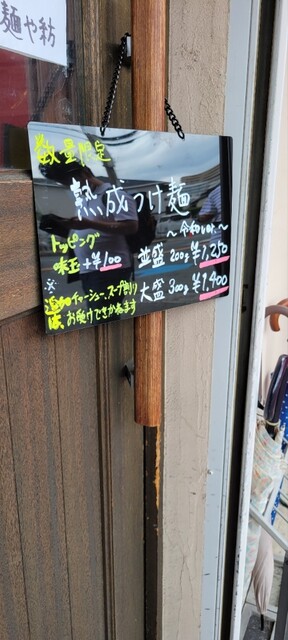 麺や紡
数量限定
熟成つけ麺
〜令和ver.〜
トッピング
味玉+¥100
並盛 200g ¥1,250
大盛 300g ¥1,400
※
追加チャーシュー、スープ割り
は、お受けできかねます